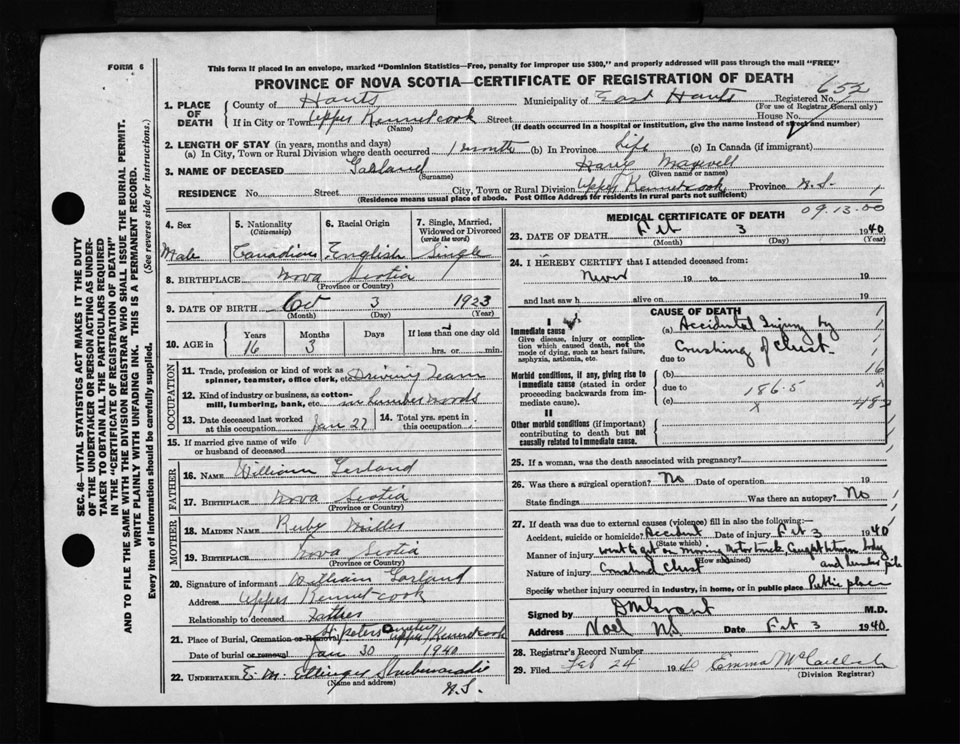 FORM 6
This form if placed in an envelope, marked "Dominion Statistics—Free, penalty for improper use $300," and properly addressed will pass through the mail "FREE"
PROVINCE OF NOVA SCOTIA—CERTIFICATE OF REGISTRATION OF DEATH
SEC. 46—VITAL STATISTICS ACT MAKES IT THE DUTY
OF THE UNDERTAKER OR PERSON ACTING AS UNDER-
TAKER TO OBTAIN ALL THE PARTICULARS REQUIRED
IN THE "CERTIFICATE OF REGISTRATION OF DEATH"
AND TO FILE THE SAME WITH THE DIVISION REGISTRAR WHO SHALL ISSUE THE BURIAL PERMIT.
WRITE PLAINLY WITH UNFADING INK. THIS IS A PERMANENT RECORD.
Every item of information should be carefully supplied. (See reverse side for instructions.)
1. PLACE OF DEATH
County of Hants Municipality of East Hants Registered No. 652
(For use of Registrar General only)
If in City or Town Upper Kennetcook Street House No.
(Name) (If death occurred in a hospital or institution, give the name instead of street and number)
2. LENGTH OF STAY (in years, months and days)
(a) In City, Town or Rural Division where death occurred 1 month (b) In Province Life (c) In Canada (if immigrant)
3. NAME OF DECEASED Garland Maxwell
(Surname) (Given name or names)
RESIDENCE No. Street City, Town or Rural Division Upper Kennetcook Province N.S.
(Residence means usual place of abode. Post Office Address for residents in rural parts not sufficient)
4. Sex Male
5. Nationality (Citizenship) Canadian
6. Racial Origin English
7. Single, Married, Widowed or Divorced (write the word) Single
8. BIRTHPLACE Nova Scotia
(Province or Country)
9. DATE OF BIRTH Oct 3 1923
(Month) (Day) (Year)
10. AGE in Years 16 Months 3 Days If less than one day old hrs. or min.
OCCUPATION
11. Trade, profession or kind of work as spinner, teamster, office clerk, etc. Driving Team
12. Kind of industry or business, as cotton-mill, lumbering, bank, etc. in Lumber woods
13. Date deceased last worked at this occupation Jan 27
14. Total yrs. spent in this occupation
15. If married give name of wife or husband of deceased
FATHER
16. NAME William Garland
17. BIRTHPLACE Nova Scotia
(Province or Country)
MOTHER
18. MAIDEN NAME Ruby Miller
19. BIRTHPLACE Nova Scotia
(Province or Country)
20. Signature of informant William Garland
Address Upper Kennetcook
Relationship to deceased Father
21. Place of Burial, Cremation or Removal St Peters Cemetery Upper Kennetcook
Date of burial or removal Jan 30 1940
22. UNDERTAKER E. M. Ettinger Shubenacadie
(Name and address)
N.S.
MEDICAL CERTIFICATE OF DEATH 09.13.00
23. DATE OF DEATH Feb 3 1940
(Month) (Day) (Year)
24. I HEREBY CERTIFY that I attended deceased from:
Never 19 to 19
and last saw h alive on 19
CAUSE OF DEATH
I
Immediate cause
Give disease, injury or complication which caused death, not the mode of dying, such as heart failure, asphyxia, asthenia, etc.
(a) Accidental Injury by
Crushing of Chest
due to
Morbid conditions, if any, giving rise to immediate cause (stated in order proceeding backwards from immediate cause).
(b) 16
due to 186.5 X
(c) X 482
II
Other morbid conditions (if important) contributing to death but not causally related to immediate cause.
25. If a woman, was the death associated with pregnancy?
26. Was there a surgical operation? No Date of operation 19
State findings Was there an autopsy? No
27. If death was due to external causes (violence) fill in also the following:—
Accident, suicide or homicide? Accident Date of injury Feb 3 1940
(State which)
Manner of injury went to get on moving Motor truck Caught between body
(How sustained) and lumber pile
Nature of injury Crushed Chest
Specify whether injury occurred in Industry, in home, or in public place Public place
Signed by M.D.
Address Noel NS Date Feb 3 1940.
28. Registrar's Record Number
29. Filed Feb 24 1940 Emma
(Division Registrar)